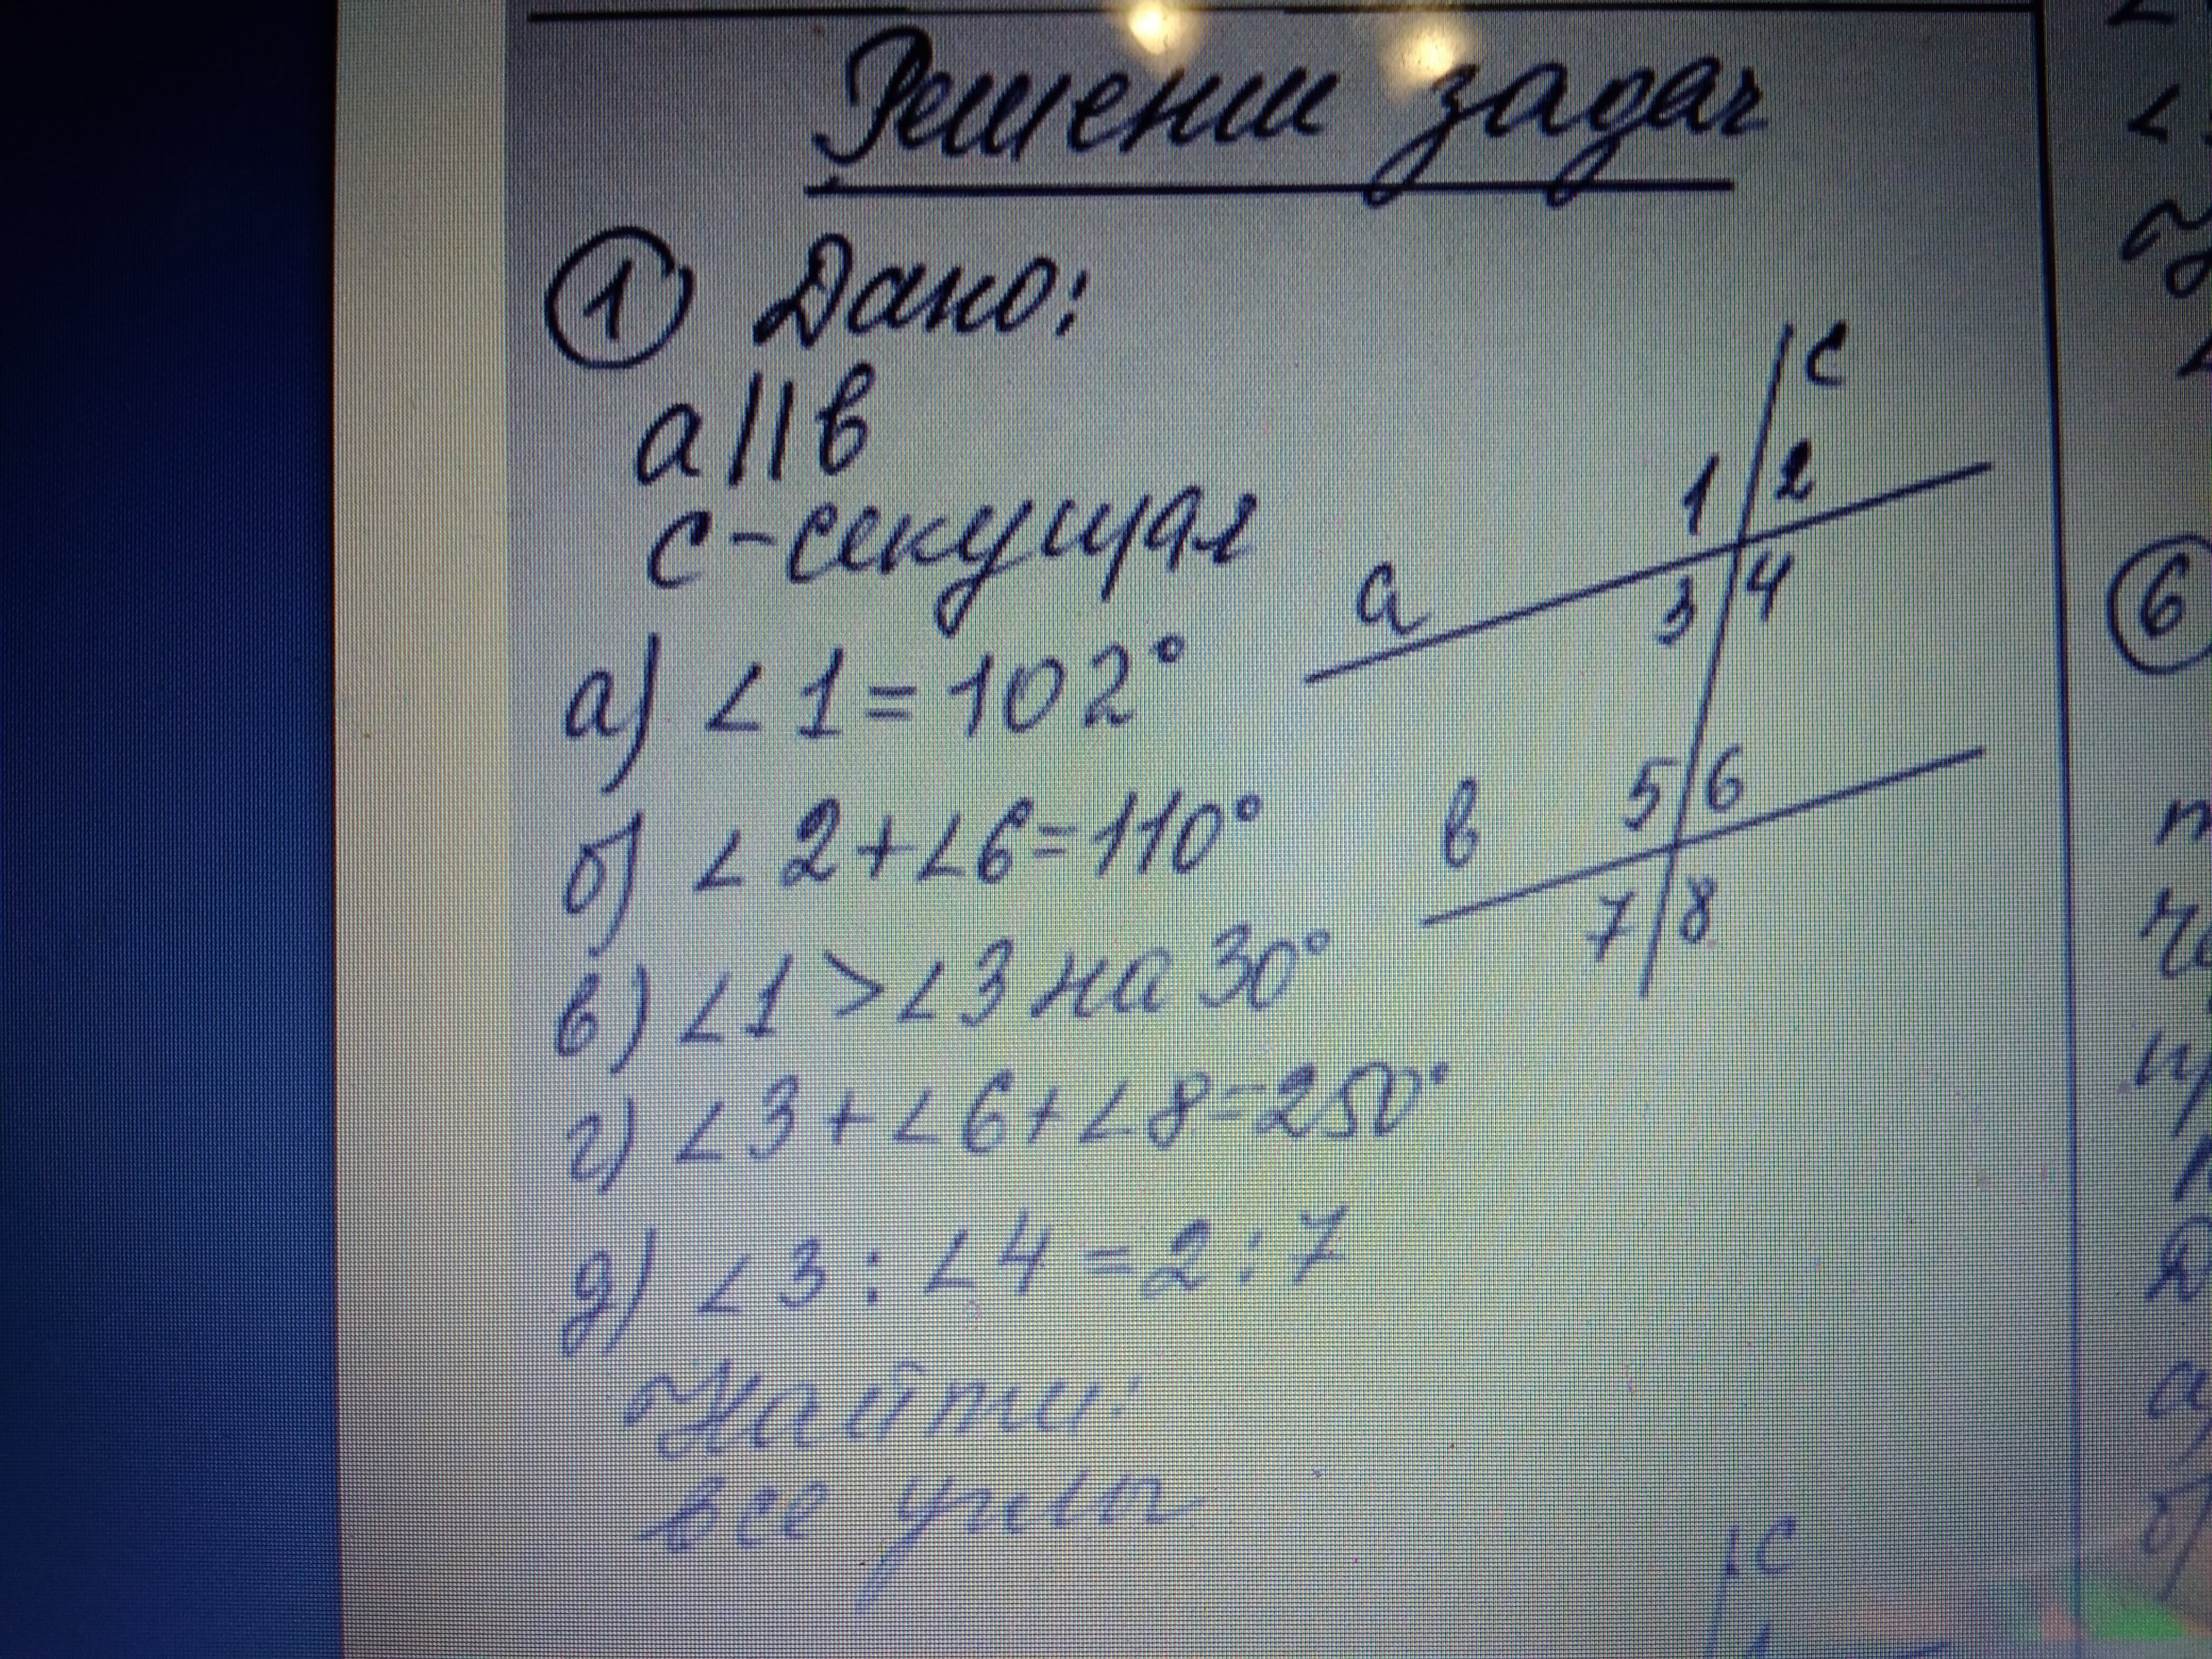 Решении задач
① Дано:
a||в
c-секущая
а) ∠1=102°
б) ∠2+∠6=110°
в) ∠1>∠3 на 30°
г) ∠3+∠6+∠8=250°
д) ∠3:∠4=2:7
Найти:
все углы
c
1 2
a
3 4
5 6
в
7 8
c
1
6